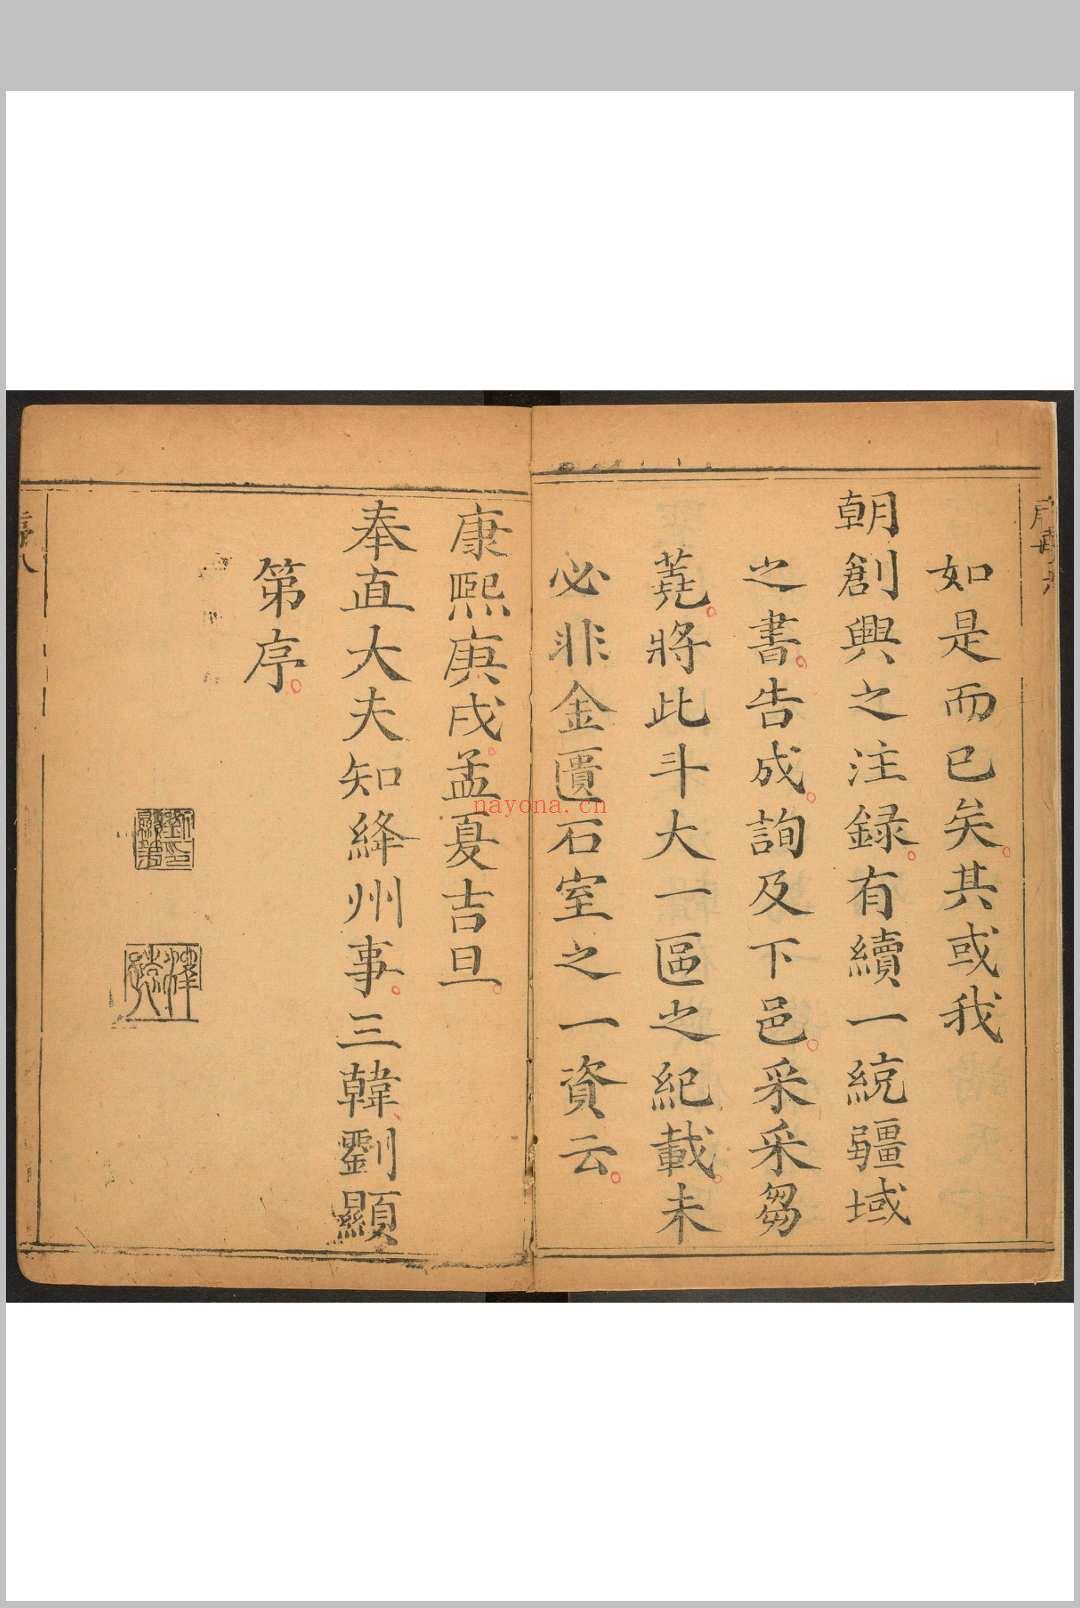 如是而已矣其或我
朝創興之注録有續一統疆域
之書告成詢及下邑采采芻
蕘將此斗大一區之紀載未
必非金匱石室之一資云
康熙庚戌孟夏吉旦
奉直大夫知絳州事三韓劉顯
第序
序八
nayona.cn